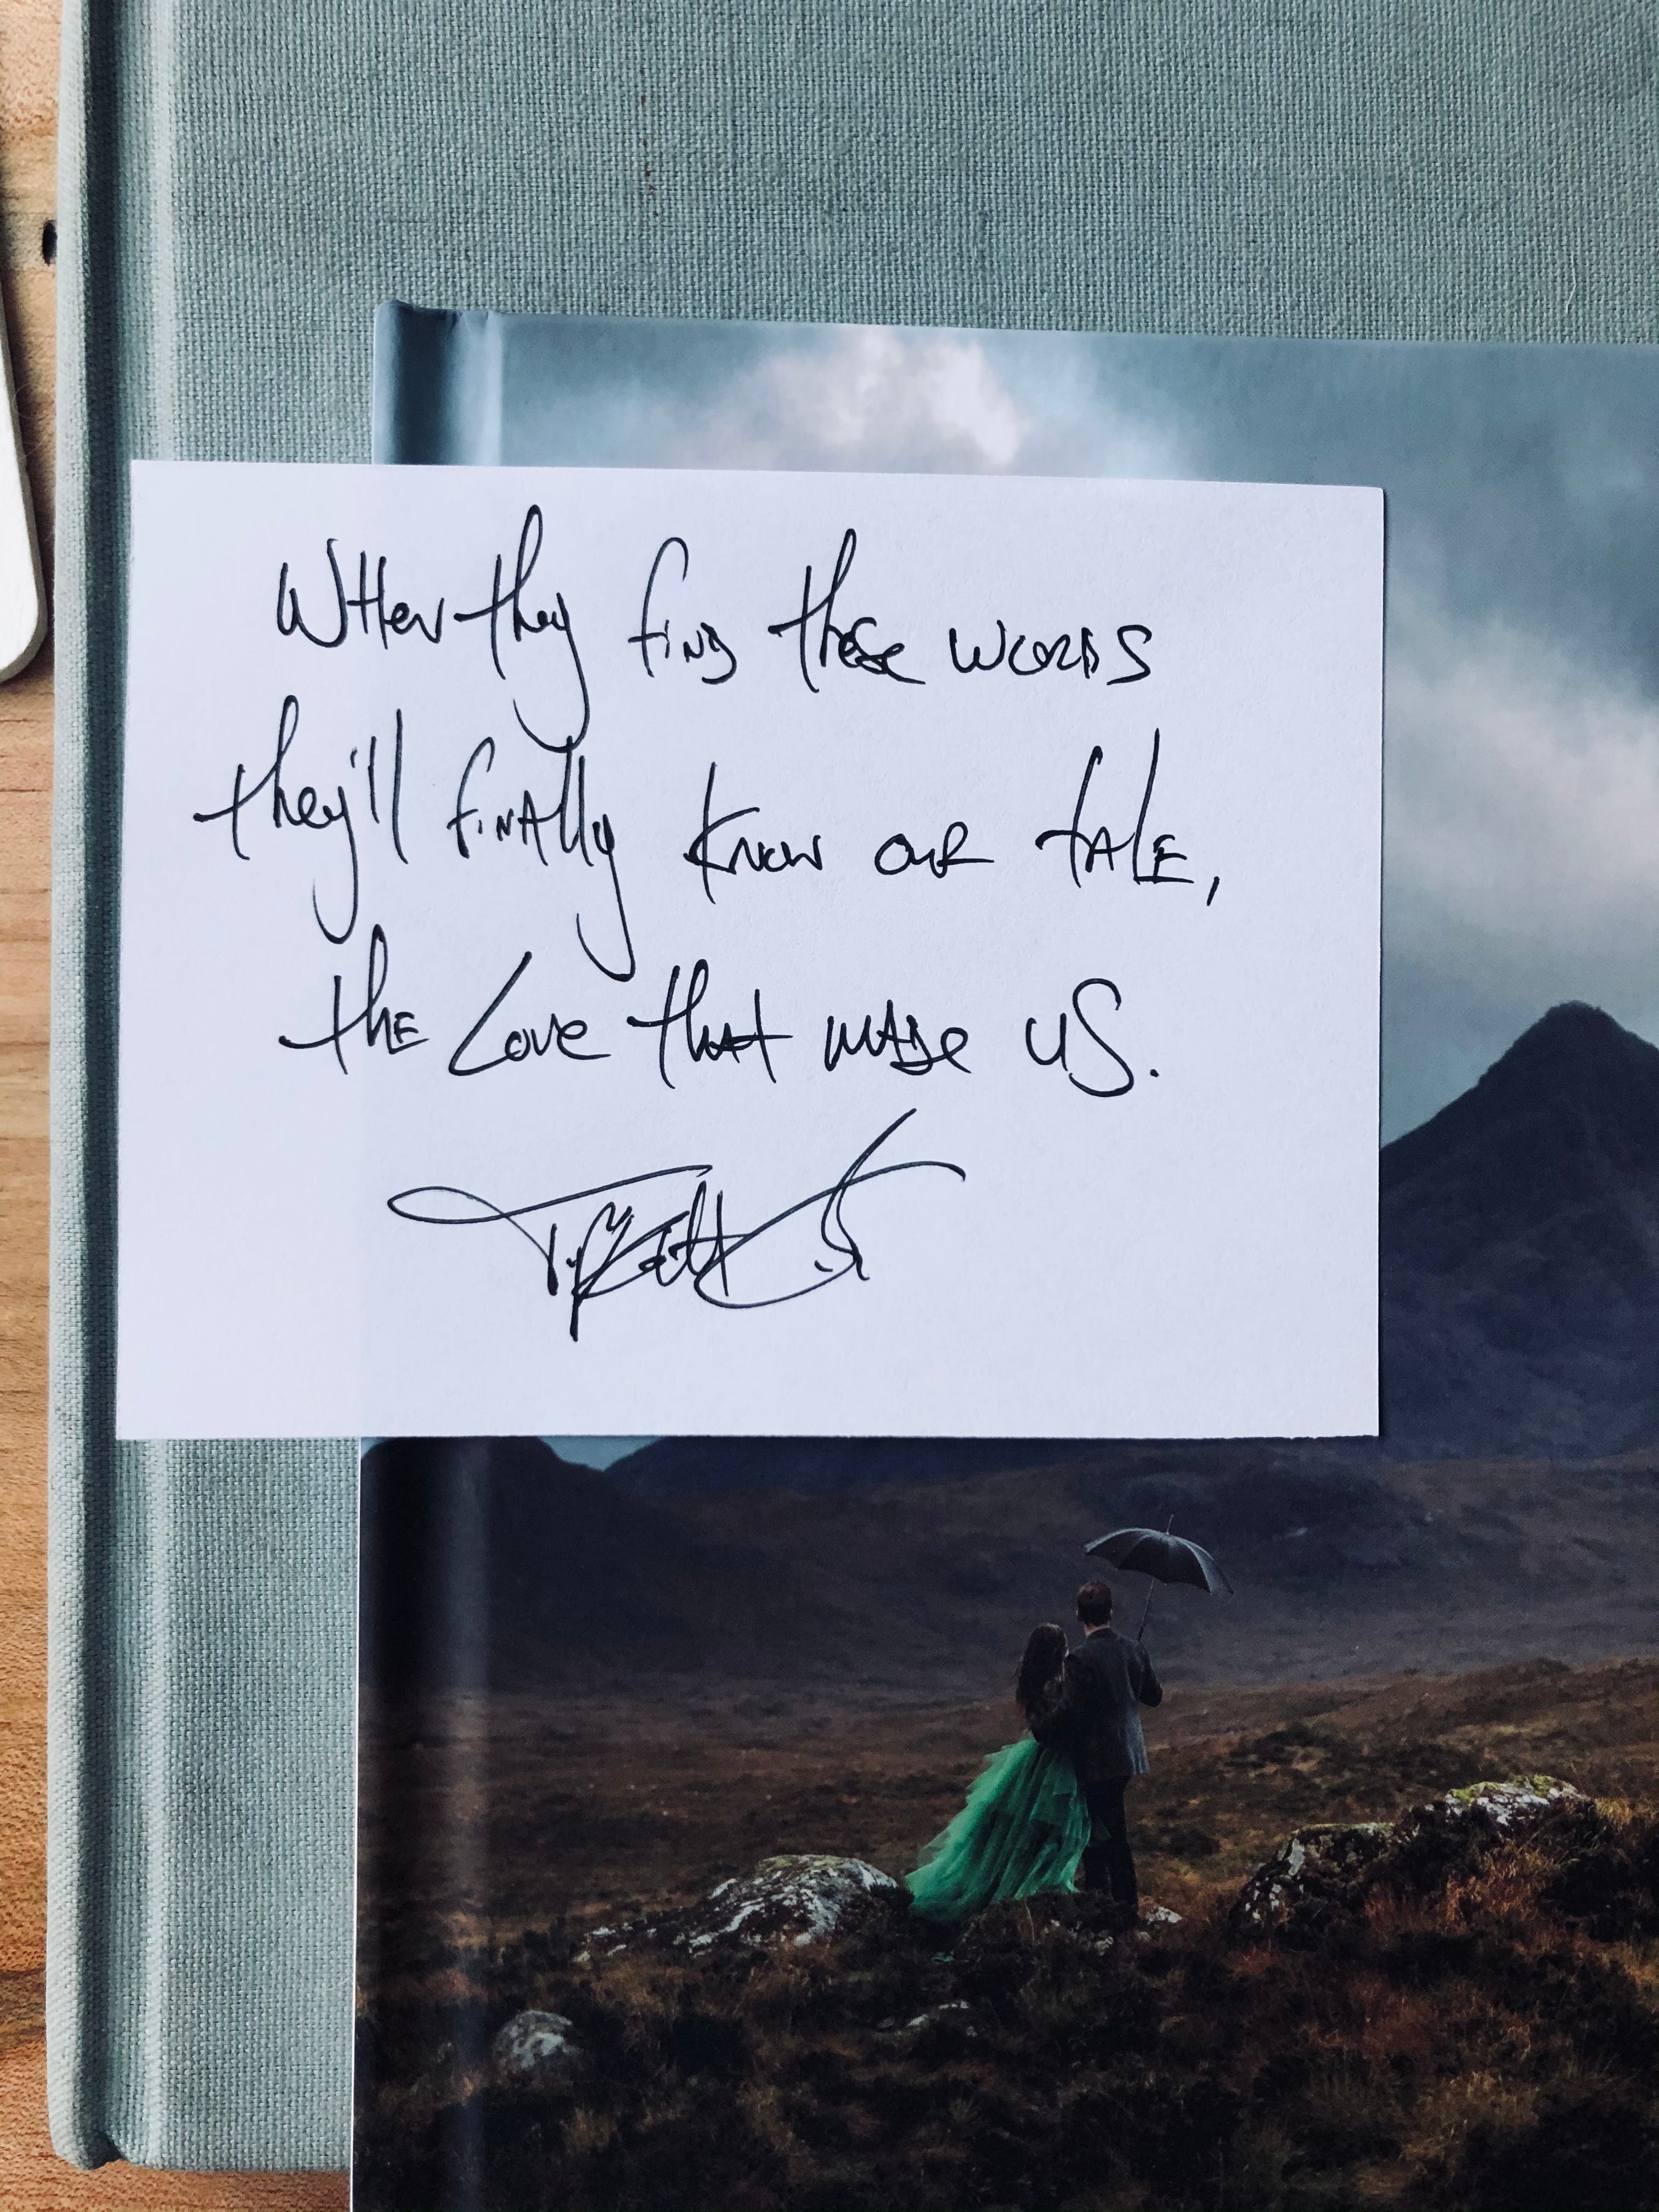 When they find these words
they'll finally know our tale,
the love that made us.